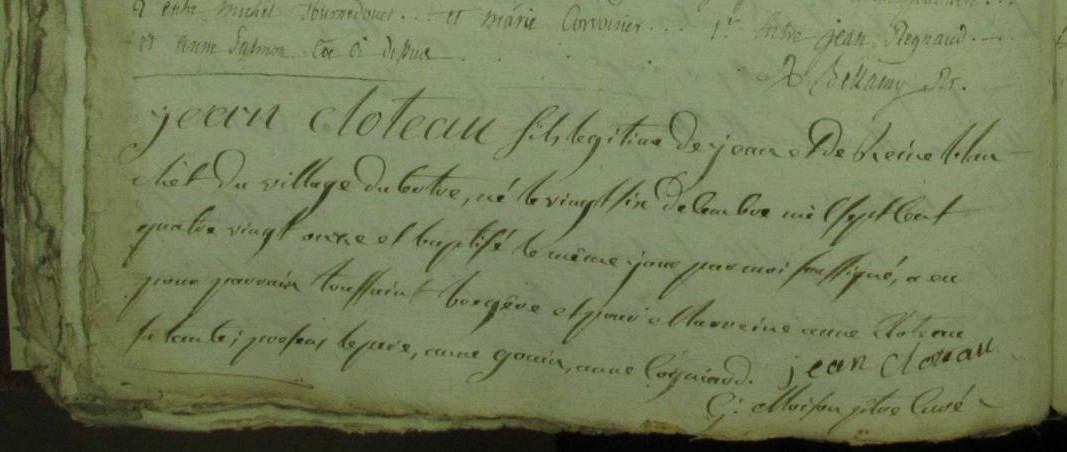 2 entre Michel et marie Corvoisier ... 1er Entre jean Regnaud
et anne Salmon ci dessus
Bellamy
jean cloteau fils legitime de jean et de Reine blan-
chet du village du tertre, né le vingt six decembre mil sept Cent
quatre vingt onze et baptisé le même jour par moi soussigné, a eu
pour parrain toussaint et pour Marreine anne Cloteau
sa tante; presens le pere, anne gouin, anne jean cloteau
G. Moison ptre Curé